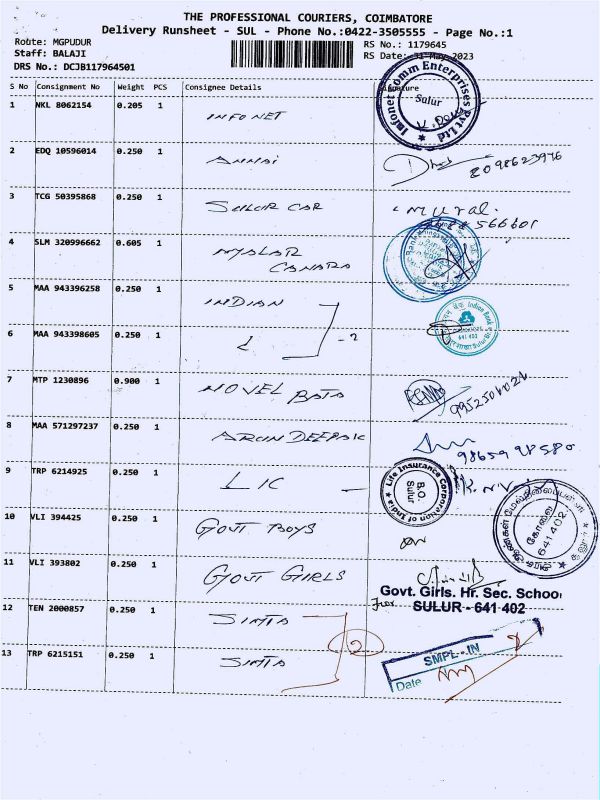 THE PROFESSIONAL COURIERS, COIMBATORE
Delivery Runsheet - SUL - Phone No.:0422-3505555 - Page No.:1
Route: MGPUDUR
RS No.: 1179645
Staff: BALAJI
RS Date: 31 May 2023
DRS No.: DCJB117964501
S No Consignment No Weight PCS Consignee Details Signature
1 NKL 8062154 0.205 1 INFONET
Infonet Comm Enterprises Pvt Ltd
Sulur
2 EDQ 10596014 0.250 1 ANNAI
3 TCG 50395868 0.250 1 SULUR CAR
4 SLM 320996662 0.605 1 MYLAR
CANARA
5 MAA 943396258 0.250 1 INDIAN
6 MAA 943398605 0.250 1 - 2
Indian Bank
641 402
7 MTP 1230896 0.900 1 NOVEL BATA
8 MAA 571297237 0.250 1 ARUN DEEPAK
9 TRP 6214925 0.250 1 LIC
Life Insurance Corporation of India
B.O.
Sulur
10 VLI 394425 0.250 1 GOVT BOYS
கோவை
641 402
11 VLI 393802 0.250 1 GOVT GIRLS
Govt. Girls. Hr. Sec. School
SULUR - 641 402
12 TEN 2000857 0.250 1 SIMTA
2
13 TRP 6215151 0.250 1 SIMTA
SMPL - IN
Date